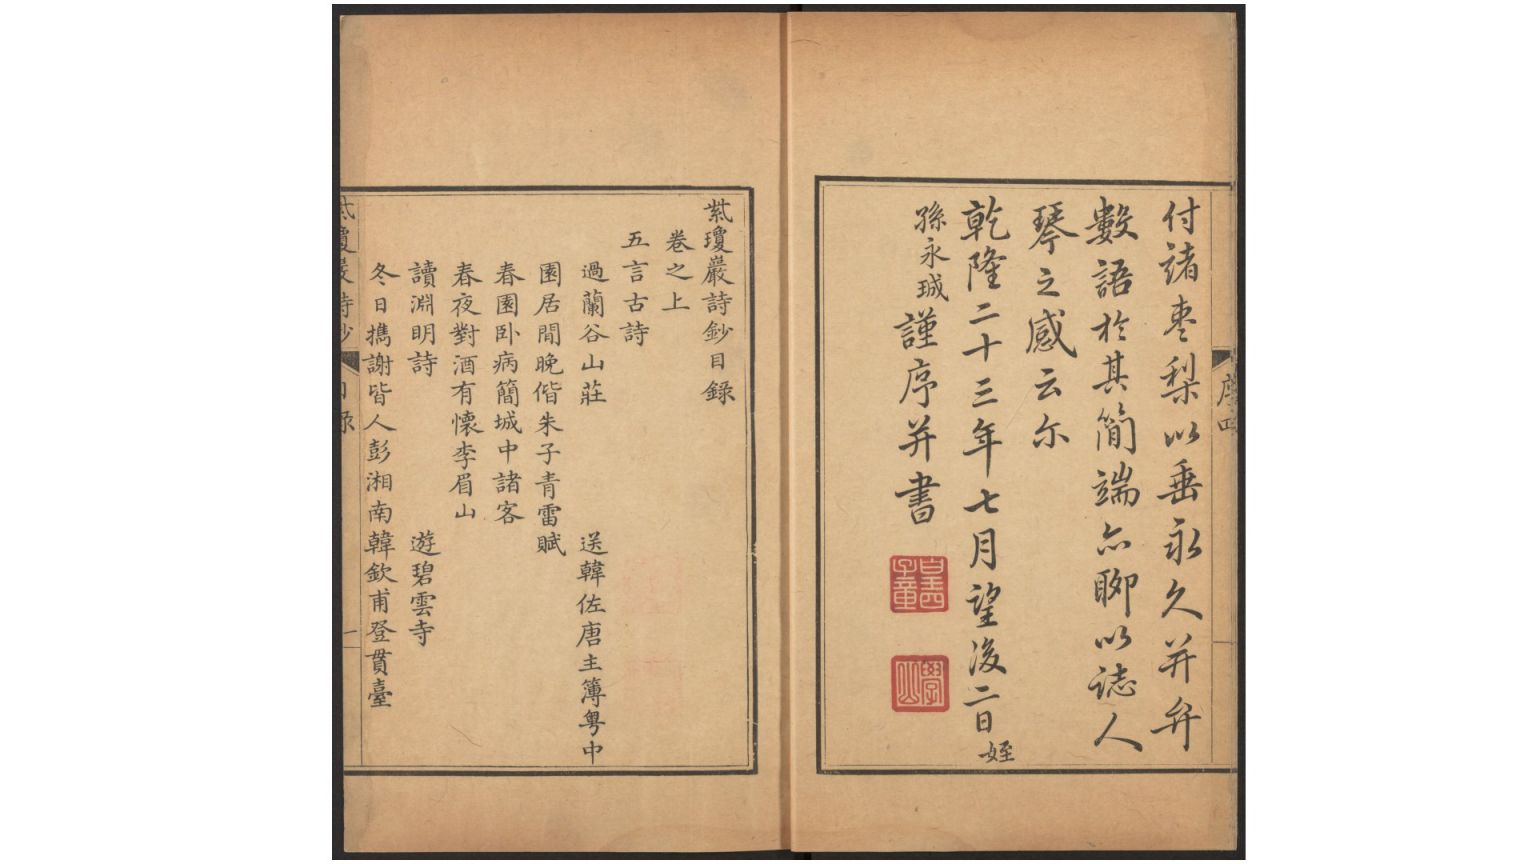 付諸枣梨以垂永久并弁
數語於其簡端亦聊以誌人
琴之感云尔
乾隆二十三年七月望後二日姪
孫永珹謹序并書
皇四子章
學山
序 四
紫瓊巖詩鈔目錄
卷之上
五言古詩
過蘭谷山莊 送韓佐唐主簿粤中
園居閒晚偕朱子青雷賦
春園卧病簡城中諸客
春夜對酒有懷李眉山
讀淵明詩 遊碧雲寺
冬日攜謝皆人彭湘南韓欽甫登貫臺
紫瓊巖詩鈔 目錄 一